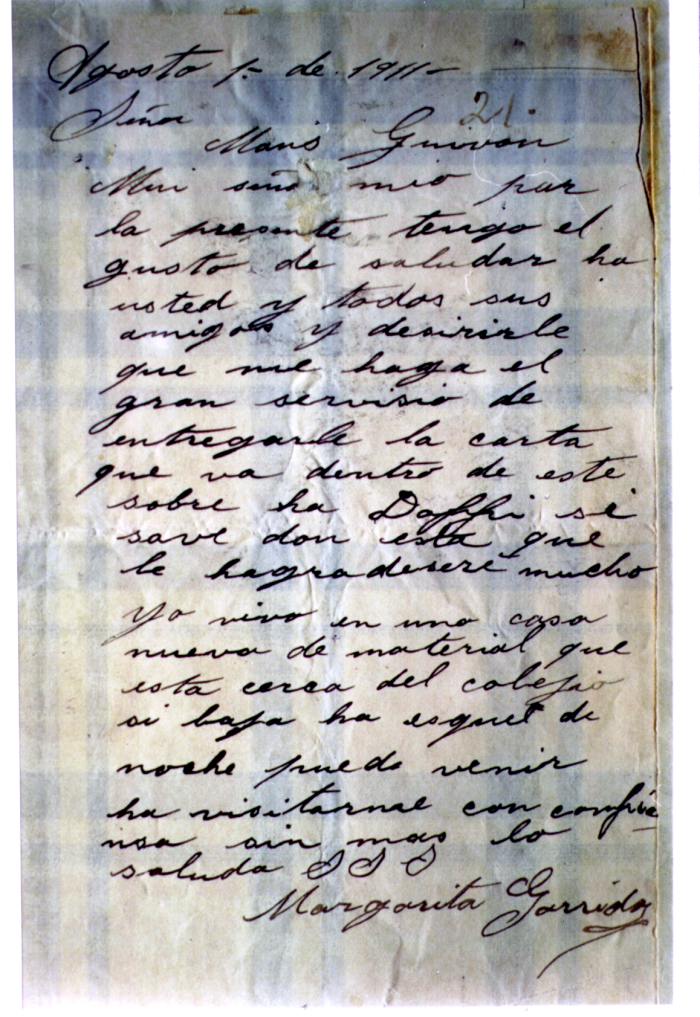 Agosto 1º de 1911-
21.
Señor
Mavis Guivon
Mui señor mio por
la presente tengo el
gusto de saludar ha
usted y todos sus
amigos y desirirle
que me haga el
gran servisio de
entregarle la carta
que va dentro de este
sobre ha Daffi si
save don esta que
le hagradeseré mucho
yo vivo en una casa
nueva de material que
esta cerca del colejio
si baja ha esquel de
noche puede venir
ha visitarme con confia
nsa sin mas lo
saluda S S S
Margarita Garrido